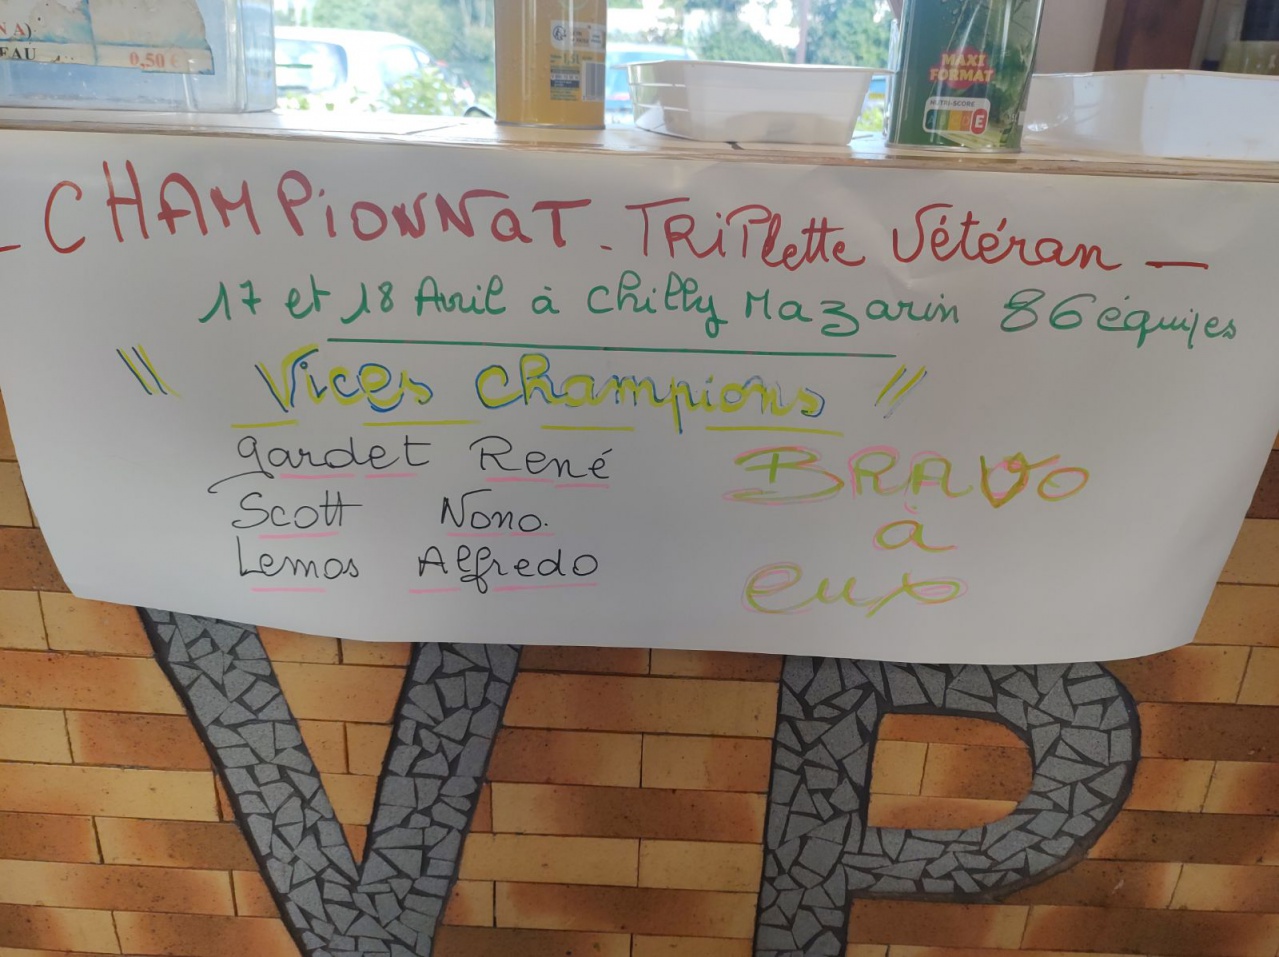 N A)
EAU ... 0,50 €
MAXI
FORMAT
NUTRI-SCORE
E
- CHAMPiONNaT - TRiPlette Vétéran -
17 et 18 Avril à Chilly Mazarin 86 équipes
" Vices Champions "
Gardet René
Scott Nono.
Lemos Alfredo
BRAVO
à
eux
VP